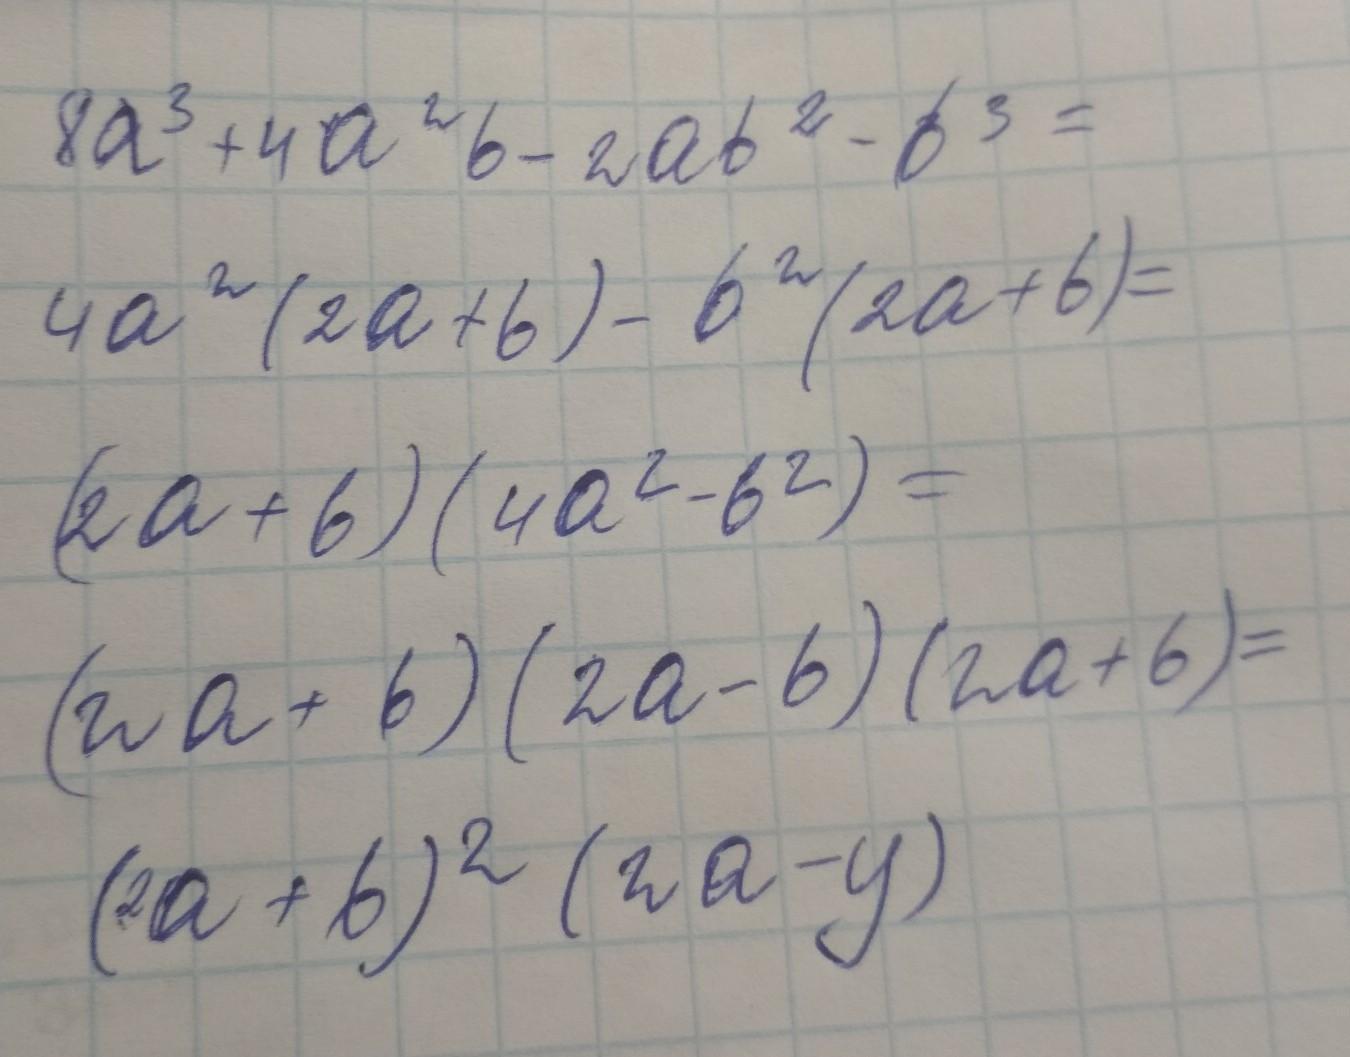 8a³+4a²b-2ab²-b³=
4a²(2a+b)-b²(2a+b)=
(2a+b)(4a²-b²)=
(2a+b)(2a-b)(2a+b)=
(2a+b)²(2a-y)